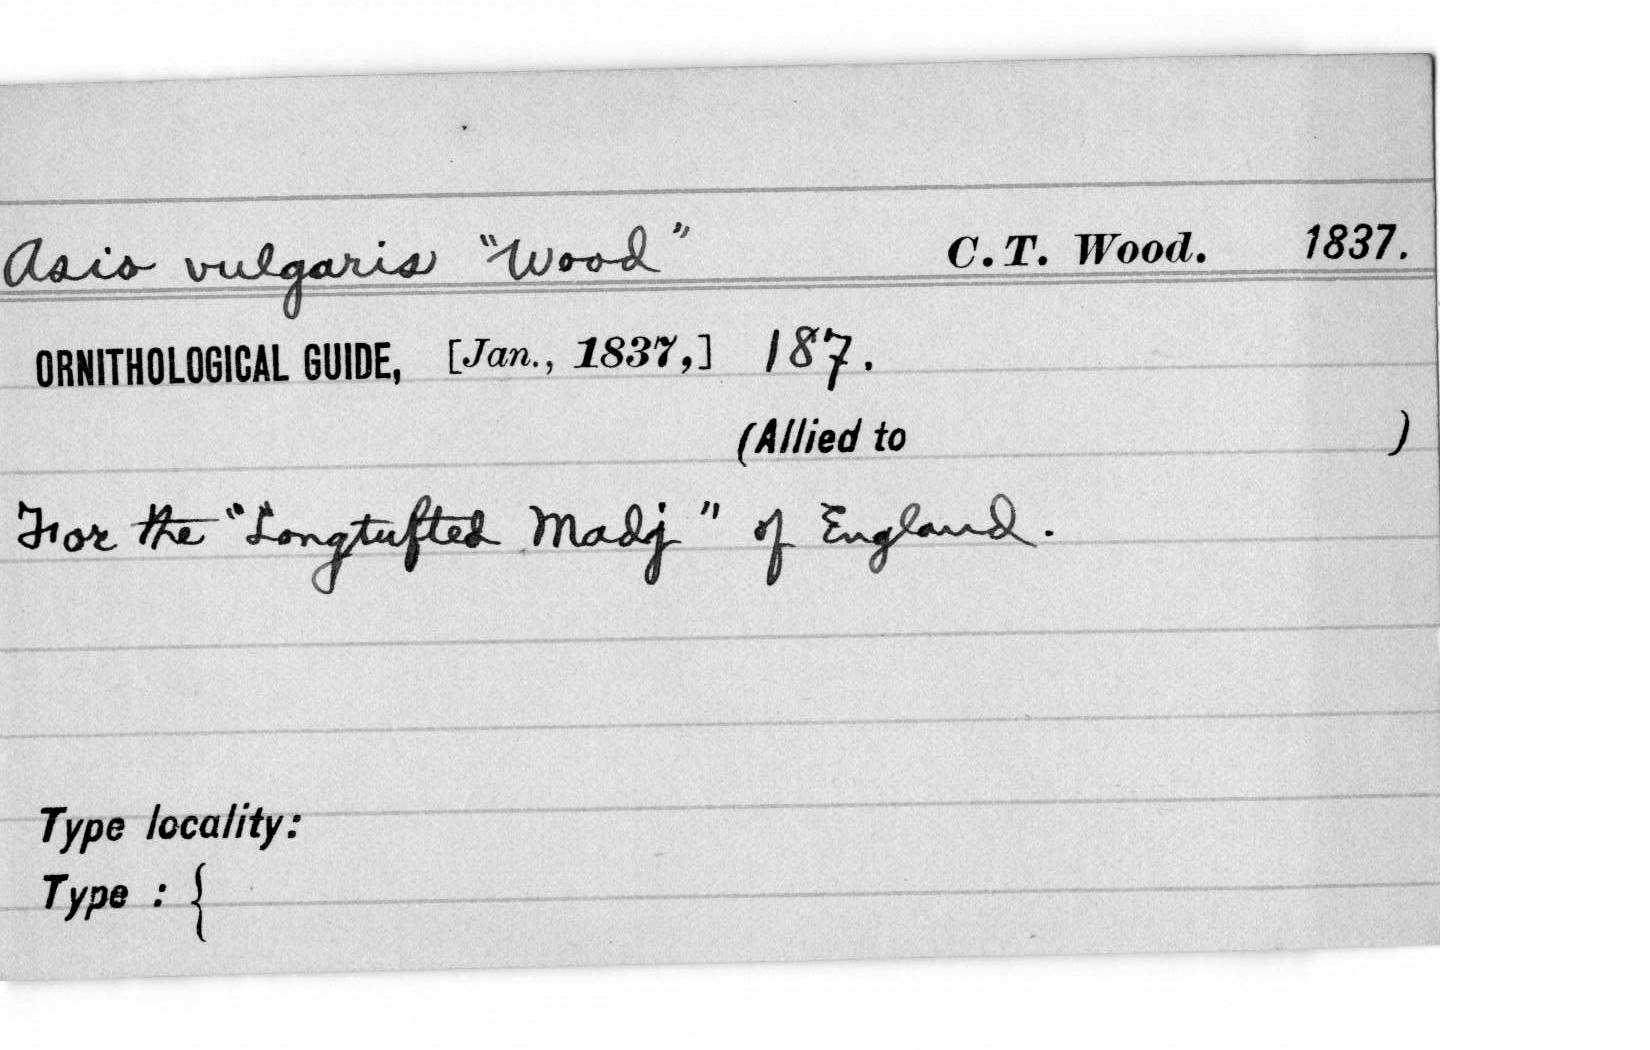 Asio vulgaris "Wood" C.T. Wood. 1837.
ORNITHOLOGICAL GUIDE, [Jan., 1837,] 187.
(Allied to )
For the "Longtufted Madj" of England.
Type locality:
Type : {